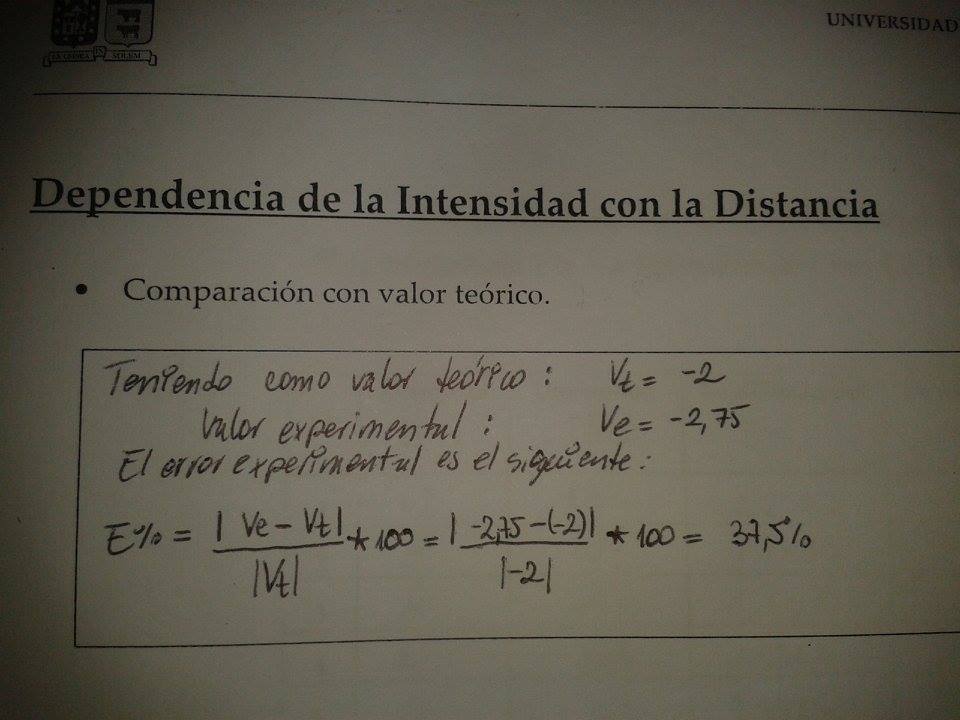 UNIVERSIDAD
Dependencia de la Intensidad con la Distancia
• Comparación con valor teórico.
Teniendo como valor teórico : Vt = -2
Valor experimental : Ve = -2,75
El error experimental es el siguiente :
E% = | Ve - Vt| / |Vt| * 100 = | -2,75 - (-2)| / |-2| * 100 = 37,5%